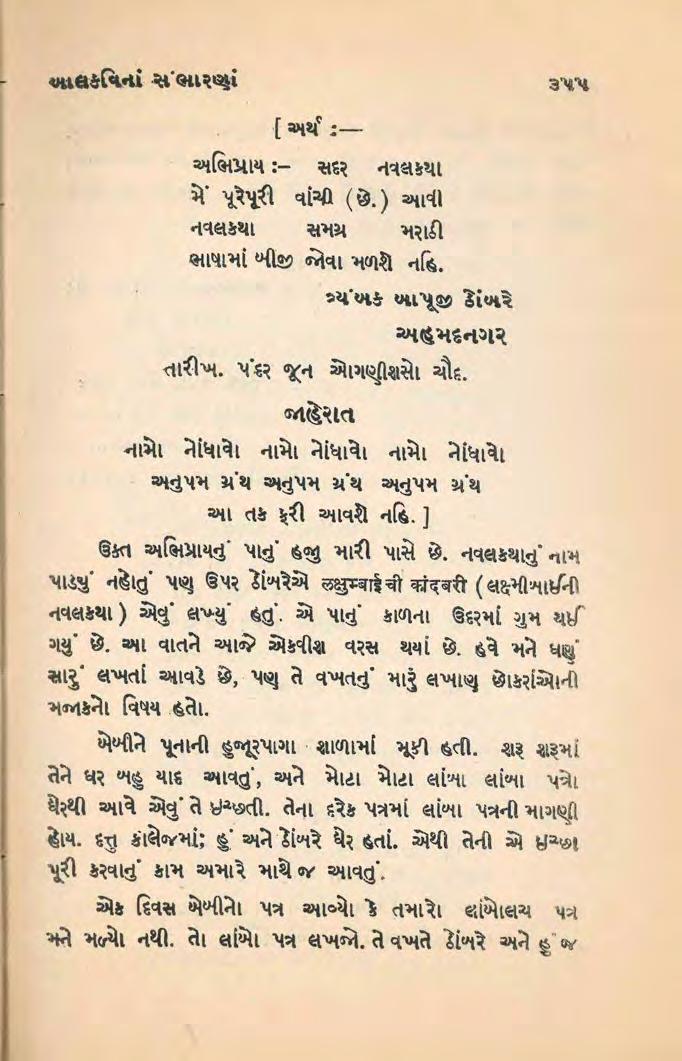 બાલકવિનાં સંભારણાં ૩૫૫
[ અર્થ :—
અભિપ્રાય :– સદર નવલકથા
મેં પૂરેપૂરી વાંચી (છે.) આવી
નવલકથા સમગ્ર મરાઠી
ભાષામાં બીજી જોવા મળશે નહિ.
ત્ર્યંબક બાપૂજી ઠોંબરે
અહમદનગર
તારીખ. પંદર જૂન ઓગણીશસો ચૌદ.
જાહેરાત
નામો નોંધાવો નામો નોંધાવો નામો નોંધાવો
અનુપમ ગ્રંથ અનુપમ ગ્રંથ અનુપમ ગ્રંથ
આ તક ફરી આવશે નહિ. ]
ઉક્ત અભિપ્રાયનું પાનું હજી મારી પાસે છે. નવલકથાનું નામ
પાડ્યું નહોતું પણ ઉપર ઠોંબરેએ लक्षुमबाई ची कांदबरी ( લક્ષ્મીબાઈની
નવલકથા ) એવું લખ્યું હતું. એ પાનું કાળના ઉદરમાં ગુમ થઈ
ગયું છે. આ વાતને આજે એકવીશ વરસ થયાં છે. હવે મને ઘણું
સારું લખતાં આવડે છે, પણ તે વખતનું મારું લખાણ છોકરાંઓની
મજાકનો વિષય હતો.
બેબીને પૂનાની હુજૂરપાગા શાળામાં મૂકી હતી. શરૂ શરૂમાં
તેને ઘર બહુ યાદ આવતું, અને મોટા મોટા લાંબા લાંબા પત્રો
ઘેરથી આવે એવું તે ઇચ્છતી. તેના દરેક પત્રમાં લાંબા પત્રની માગણી
હોય. દત્તુ કાલેજમાં; હું અને ઠોંબરે ઘેર હતાં. એથી તેની એ ઇચ્છા
પૂરી કરવાનું કામ અમારે માથે જ આવતું.
એક દિવસ બેબીનો પત્ર આવ્યો કે તમારો લાંબોલચ પત્ર
મને મળ્યો નથી. તો લાંબો પત્ર લખજો. તે વખતે ઠોંબરે અને હું જ